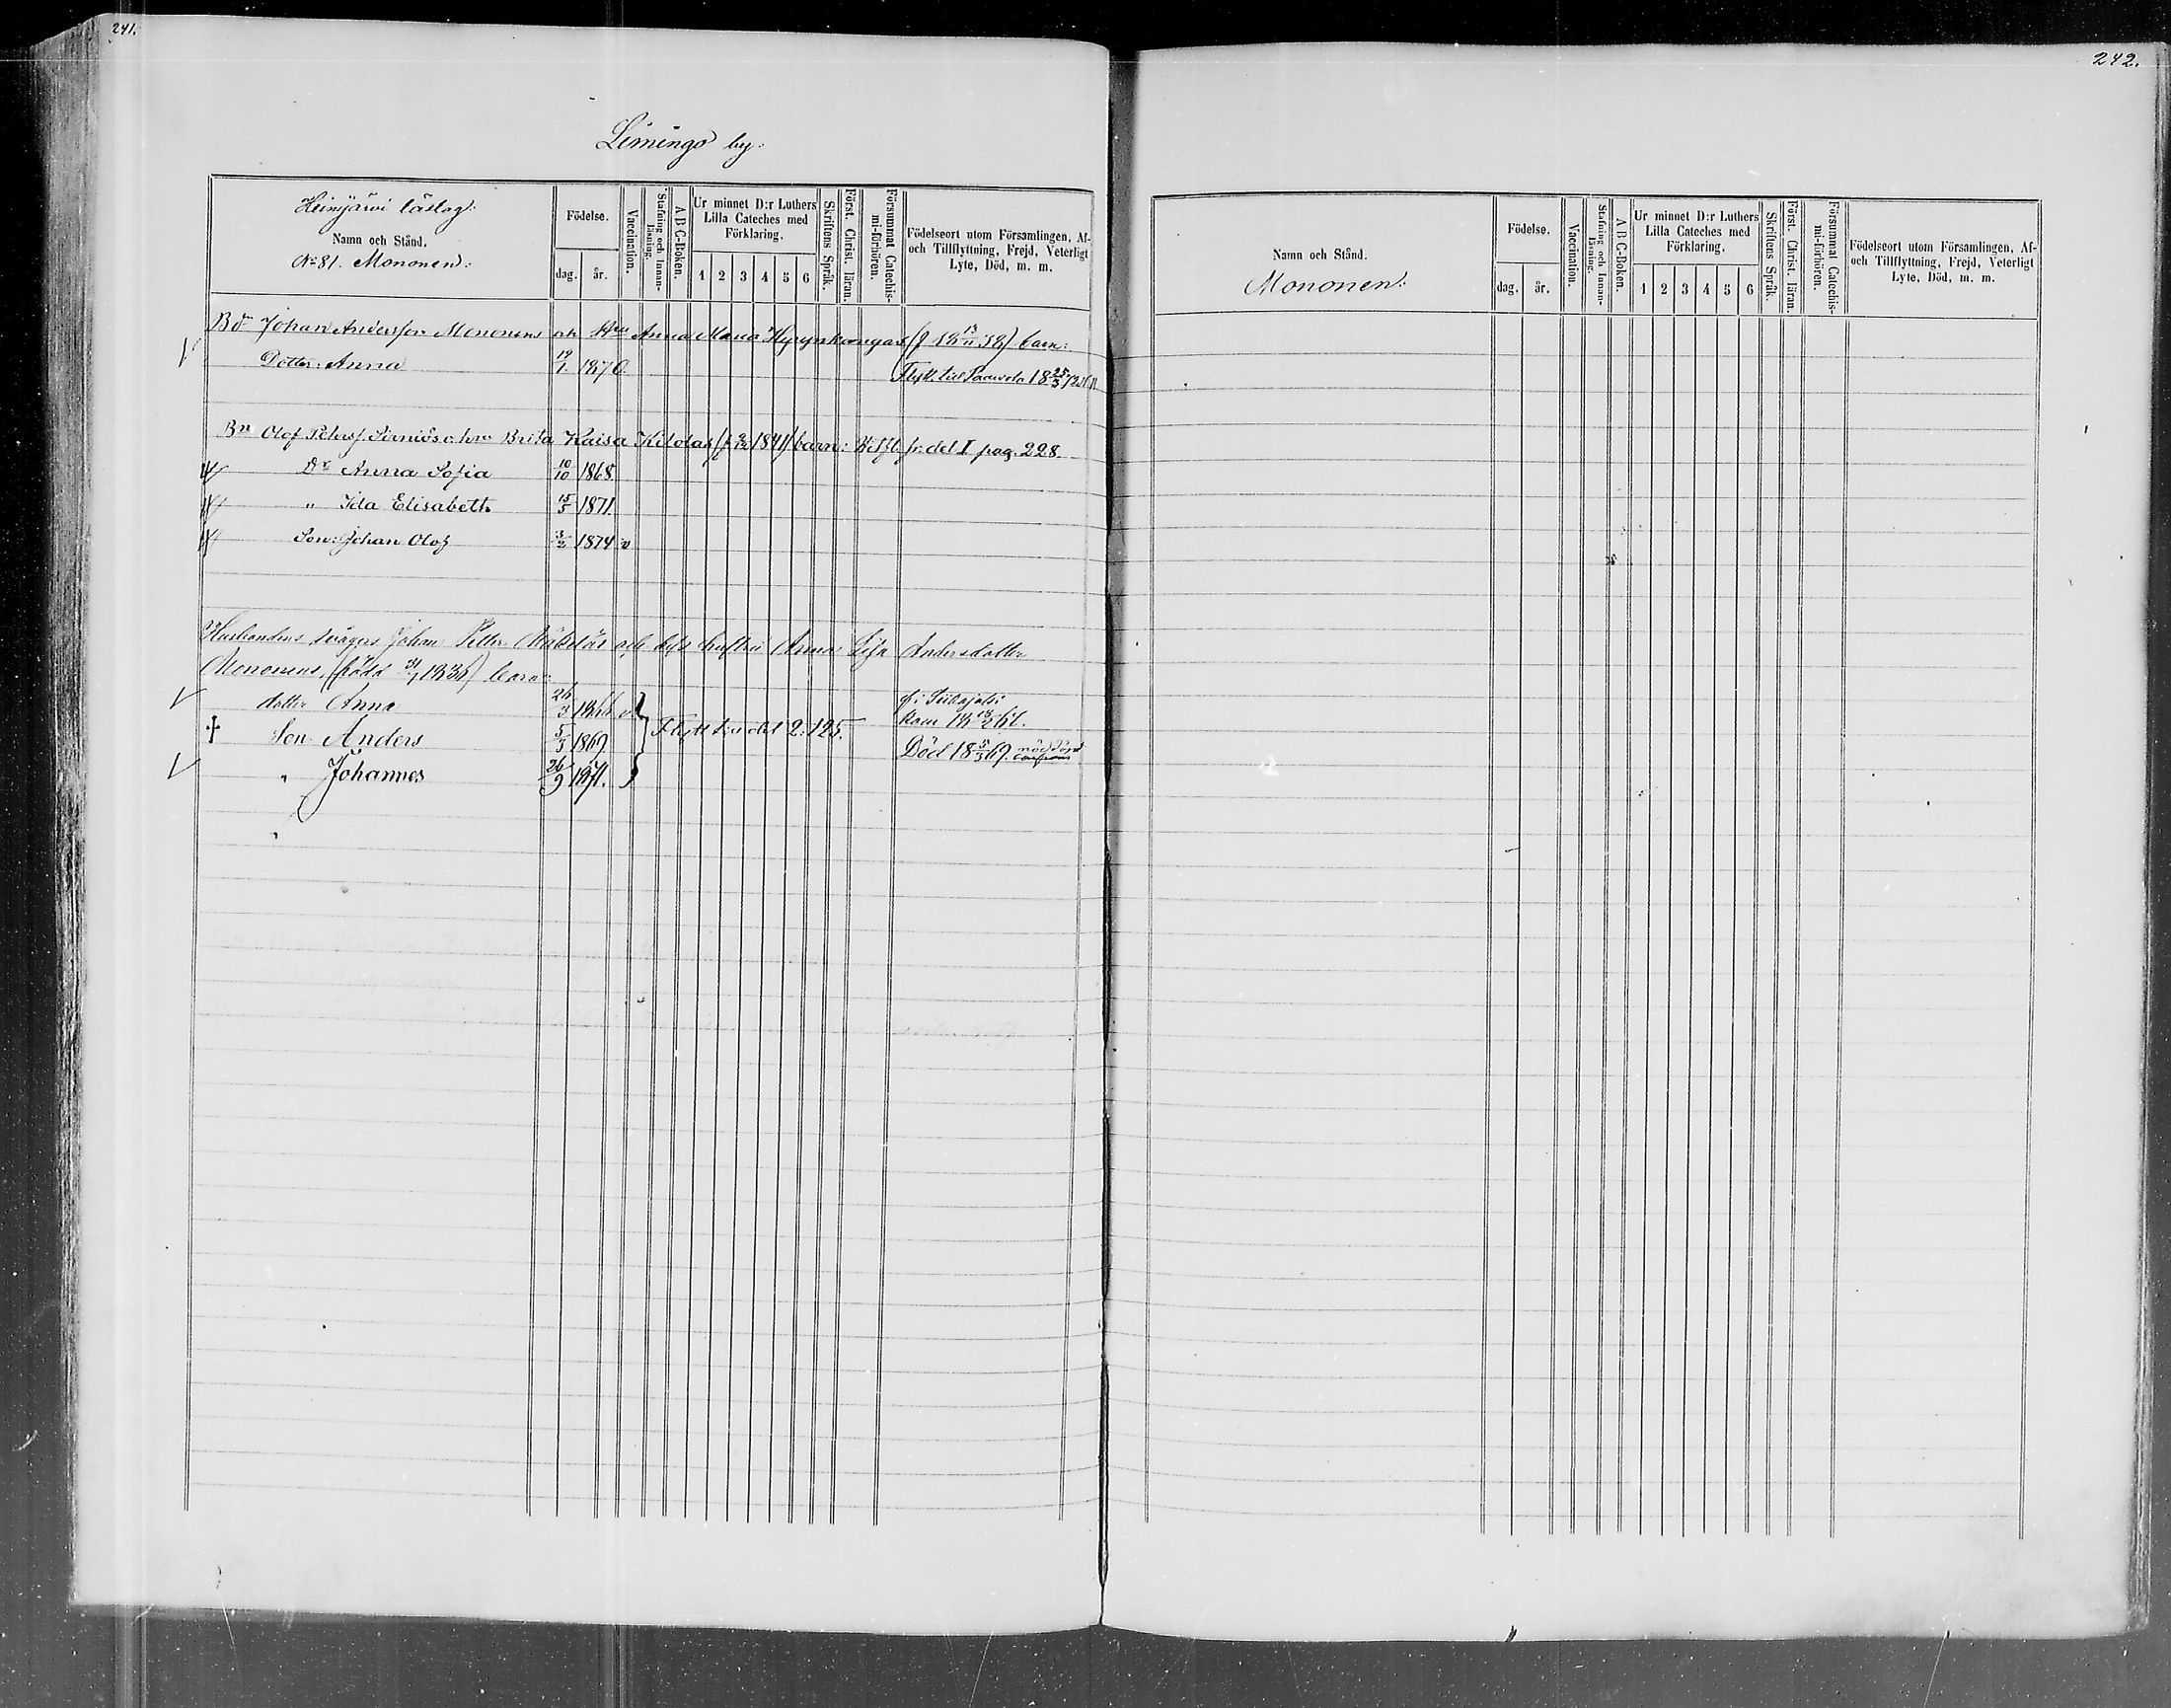 241.
Limingo by:
Heinijärvi läslag:
Namn och Stånd.
No 81. Mononen:
Födelse.
dag. år.
Vaccination.
Stafning och Innan-läsning.
A B C-Boken.
Ur minnet D:r Luthers
Lilla Cateches med
Förklaring.
1 2 3 4 5 6
Skriftens Språk.
Först. Christ. läran.
Försummat Catechis-mi-förhören.
Födelseort utom Församlingen, Af-
och Tillflyttning, Frejd, Veterligt
Lyte, Död, m. m.
Bdn Johan Andersson Mononens och Hru Anna Maria Hyrynkangas (f 18 13/11 38) barn:
Dotter: Anna 19/1 1870 Flytt. till Paavola 18 25/3 72
Bn Olof Peterss. Sirniös o. hru Brita Kaisa Kilolas 1841) barn: fr. del I pag. 228.
Dr Anna Sofia 10/10 1868.
" Ida Elisabeth 15/5 1871.
Son: Johan Olof 3/2 1874 v
Husbondens svågers Johan Petter och dess hustru Anna Lisa Andersdotter
Mononens, (född 31/1 1836) barn:
dotter Anna 26/3 1866 v f. i Siikajoki
kom 18 66.
Flytt till del 2: 125.
† Son Anders 5/3 1869. Död 18 5/3 69. nöddöpt
" Johannes 26/9 1871.
242.
Namn och Stånd.
Mononen:
Födelse.
dag. år.
Vaccination.
Stafning och Innan-läsning.
A B C-Boken.
Ur minnet D:r Luthers
Lilla Cateches med
Förklaring.
1 2 3 4 5 6
Skriftens Språk.
Först. Christ. läran.
Försummat Catechis-mi-förhören.
Födelseort utom Församlingen, Af-
och Tillflyttning, Frejd, Veterligt
Lyte, Död, m. m.